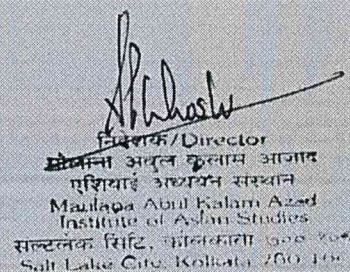 निदेशक/Director
मौलाना अबुल कलाम आजाद
एशियाई अध्ययन संस्थान
Maulana Abul Kalam Azad
Institute of Asian Studies
सल्टलेक सिटि, कोलकाता
Salt Lake City, Kolkata 700 106